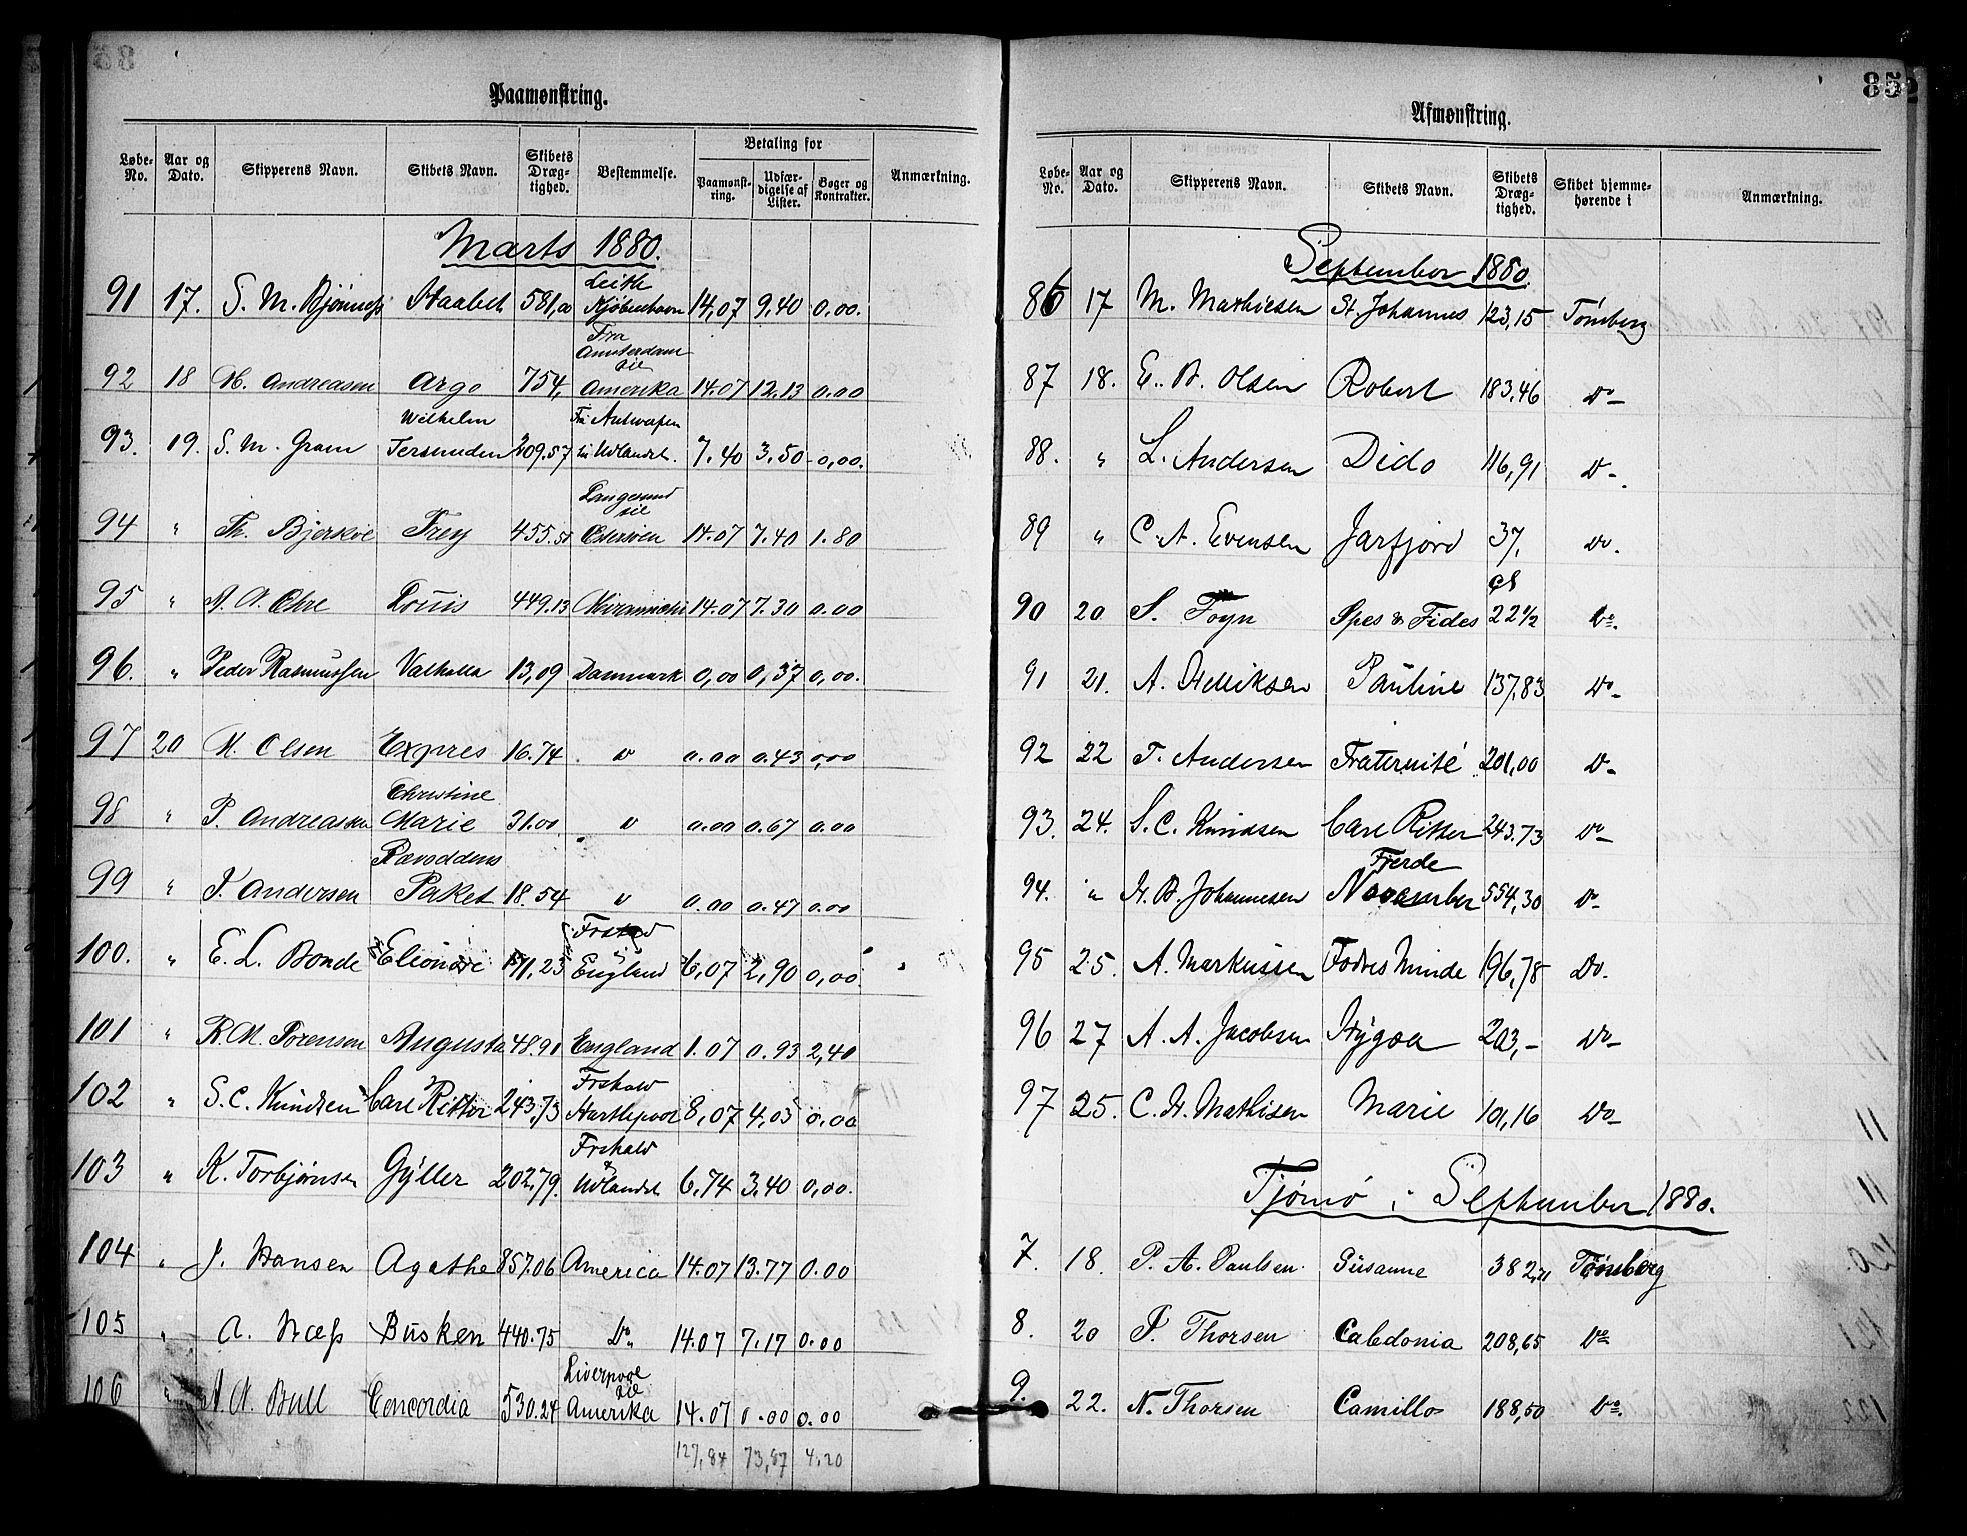 Paamønstring.
Løbe-No. Aar og Dato. Skipperens Navn. Skibets Navn. Skibets Dræg-tighed. Bestemmelse. Betaling for Paamønst-ring. Udfær-digelse af Lister. Bøger og Kontrakter. Anmærkning.
Marts 1880.
Leith
91 17. S. M. Bjønness Haabet 581,00 Kjøbenhavn 14,07 9,40 0.00.
Fra
Amsterdam
til
92 18 H. Andreasen Argo 754, Amerika 14.07 12.13 0.00
Wilhelm Fra Antwerpen
93. 19. S. M. Gram Tersmeden 209.57 til Udlandet. 7.40 3.50 0,00.
Langesund
til
94 " Th. Bjerskoe Frey 455.51 14.07 7.40 1.80
95 " Louis 449.13 Miramichi 14.07 7.30 0.00
96. " Peder Rasmussen Valhalla 13,09 Danmark 0,00 0,37 0,00.
97 20 M. Olsen Expres 16.74 " 0.00 0.43 0,00
Christine
98 " P. Andreassen Marie 31.00 " 0.00 0.67 0.00
Rævoddens
99 " P. Andersen Paket 18.54 " 0.00 0.47 0.00
100. " E. L. Bonde Elionore 171.23 England 6,07 2,90 0,00
101 " R. M. Sørensen Augusta 48.91 England 1.07 0.93 2,40
Frshald
102 " S. C. Knudsen Carl Ritter 243,73 Hartlepool 8,07 4,05 0.00
Frshald
103 " K. Torbjønsen Gyller 202,79. Udlandet 6,74 3,40 0,00.
104 " J. Hansen Agathe 857.06 America 14.07 13.77 0.00
105 " A. Næss Busken 440.75 Do 14.07 7.17 0.00
Liverpool
til
106 " A. N. Bull Concordia 530.24 Amerika 14.07 0.00 0.00
127,84 73,87 4,20
85
Afmønstring.
Løbe-No. Aar og Dato. Skipperens Navn. Skibets Navn. Skibets Dræg-tighed. Skibet hjemme-hørende i Anmærkning.
September 1880.
86 17 M. Mathiesen St. Johannes 123,15 Tønsberg
87 18. E. B. Olsen Robert 183,46 Do
88. " L. Andersen Dido 116,91 Do
89 " C. A. Evensen Jarfjord 37, Do.
cl
90 20 S. Foyn Spes & Fides 22 1/2 Do.
91 21. A. Henriksen Pauline 137,83 Do
92 22 T. Andersen Fraternité 201,00 Do
93. 24. S. C. Knudsen Carl Ritter 243.73 Do
Fjerde
94. " H. B. Johannesen November 554,30 Do
95 25. A. Markussen Fædres Minde 196,78 Do.
96 27 A. A. Jacobsen Hygæa 203,- Do
97 25. C. H. Mathisen Marie 101,16 Do
Tjømø i September 1880.
7. 18. P. A. Paulsen Susanne 382,21 Tønsberg
8. 20 P. Thorsen Caledonia 208,65 Do
9. 22. N. Thorsen Camillo 188,50 Do.